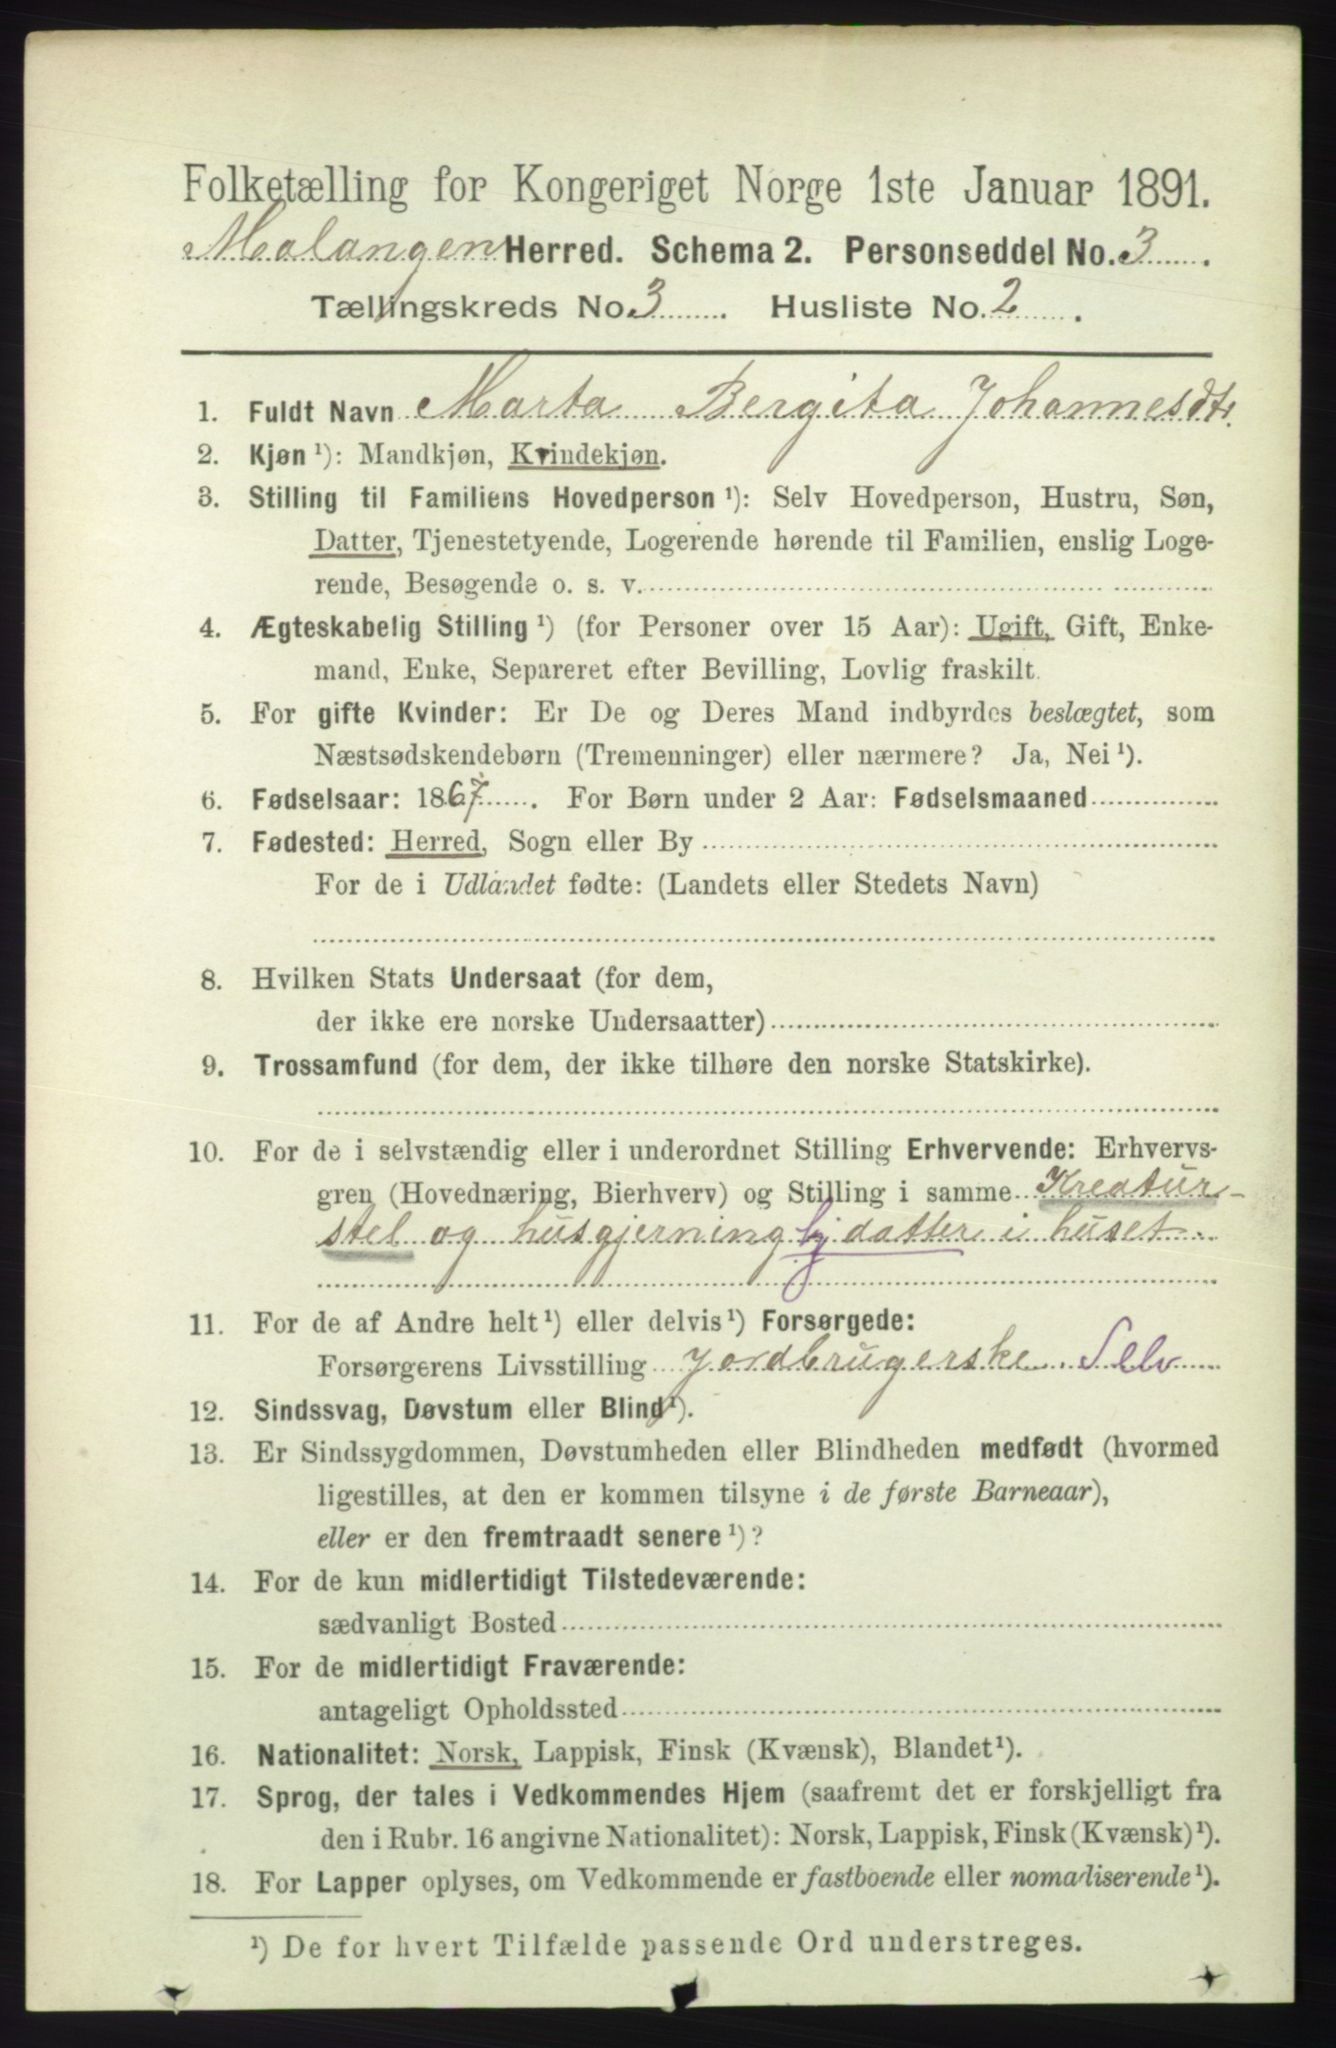 Folketælling for Kongeriget Norge 1ste Januar 1891.
Malangen Herred. Schema 2. Personseddel No. 3.
Tællingskreds No. 3. Husliste No. 2.
1. Fuldt Navn Marta Bergita Johannesdtr.
2. Kjøn ¹): Mandkjøn, Kvindekjøn.
3. Stilling til Familiens Hovedperson ¹): Selv Hovedperson, Hustru, Søn,
Datter, Tjenestetyende, Logerende hørende til Familien, enslig Loge-
rende, Besøgende o. s. v.
4. Ægteskabelig Stilling ¹) (for Personer over 15 Aar): Ugift, Gift, Enke-
mand, Enke, Separeret efter Bevilling, Lovlig fraskilt.
5. For gifte Kvinder: Er De og Deres Mand indbyrdes beslægtet, som
Næstsødskendebørn (Tremenninger) eller nærmere? Ja, Nei ¹).
6. Fødselsaar: 1867. For Børn under 2 Aar: Fødselsmaaned
7. Fødested: Herred, Sogn eller By
For de i Udlandet fødte: (Landets eller Stedets Navn)
8. Hvilken Stats Undersaat (for dem,
der ikke ere norske Undersaatter)
9. Trossamfund (for dem, der ikke tilhøre den norske Statskirke).
10. For de i selvstændig eller i underordnet Stilling Erhvervende: Erhvervs-
gren (Hovednæring, Bierhverv) og Stilling i samme Kreatur-
stel og husgjerning hj datter i huset.
11. For de af Andre helt ¹) eller delvis ¹) Forsørgede:
Forsørgerens Livsstilling Jordbrugerske. Selv
12. Sindssvag, Døvstum eller Blind ¹).
13. Er Sindssygdommen, Døvstumheden eller Blindheden medfødt (hvormed
ligestilles, at den er kommen tilsyne i de første Barneaar),
eller er den fremtraadt senere ¹)?
14. For de kun midlertidigt Tilstedeværende:
sædvanligt Bosted
15. For de midlertidigt Fraværende:
antageligt Opholdssted
16. Nationalitet: Norsk, Lappisk, Finsk (Kvænsk), Blandet ¹).
17. Sprog, der tales i Vedkommendes Hjem (saafremt det er forskjelligt fra
den i Rubr. 16 angivne Nationalitet): Norsk, Lappisk, Finsk (Kvænsk) ¹).
18. For Lapper oplyses, om Vedkommende er fastboende eller nomadiserende ¹).
¹) De for hvert Tilfælde passende Ord understreges.